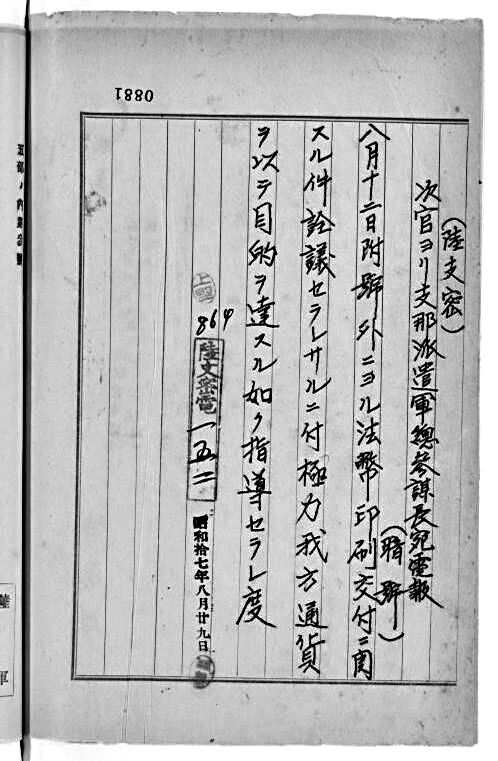 0881
(陸支密)
次官ヨリ支那派遣軍總参謀長宛電報
(暗號)
八月十二日附號外ニヨル法幣印刷交付ニ関
スル件詮議セラレサルニ付極力我方通貨
ヲ以テ目的ヲ達スル如ク指導セラレ度
陸支密電一五二
864
昭和拾七年八月廿九日
陸
軍